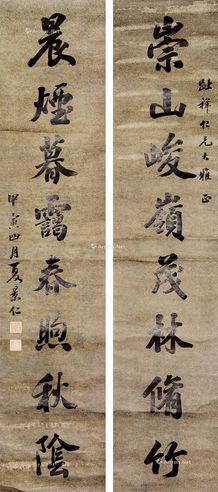 崇山峻嶺茂林脩竹
祥仁兄大雅正
晨煙暮靄春煦秋陰
甲寅四月夏
仁